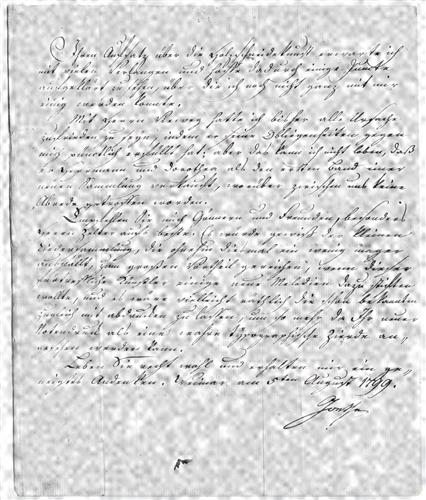 Ihren Aufsatz über die Holzschneidekunst erwarte ich
mit vielem Verlangen und hoffe dadurch einige Puncte
aufgeklärt zu sehen, über die ich noch nicht ganz mit mir
einig werden konnte.
Mit Herrn Vieweg hatte ich bisher alle Ursache
zufrieden zu seyn, indem er seine Obliegenheiten gegen
mich pünctlich erfüllt hat, aber das kann ich nicht loben, daß
er Herrmann und Dorothea als den ersten Band einer
neuen Sammlung verkauft, worüber zwischen uns keine
Abrede getroffen worden.
Empfehlen Sie mich Gönnern und Freunden, besonders
Herrn Zelter aufs beste. Es würde gewiß der kleinen
Liedersammlung, die ohnehin diesmal ein wenig mager
ausfällt, zum großen Vortheil gereichen, wenn dieser
vortreffliche Künstler einige neue Melodien dazu stiften
wollte, und es wäre vielleicht räthlich die schon bekannten
zugleich mit abdrucken zu lassen, um so mehr da Ihr neuer
Notendruck als eine wahre typographische Zierde an-
gesehen werden kann.
Leben Sie recht wohl und erhalten mir ein ge-
neigtes Andenken. Weimar am 5ten August 1799.
Goethe